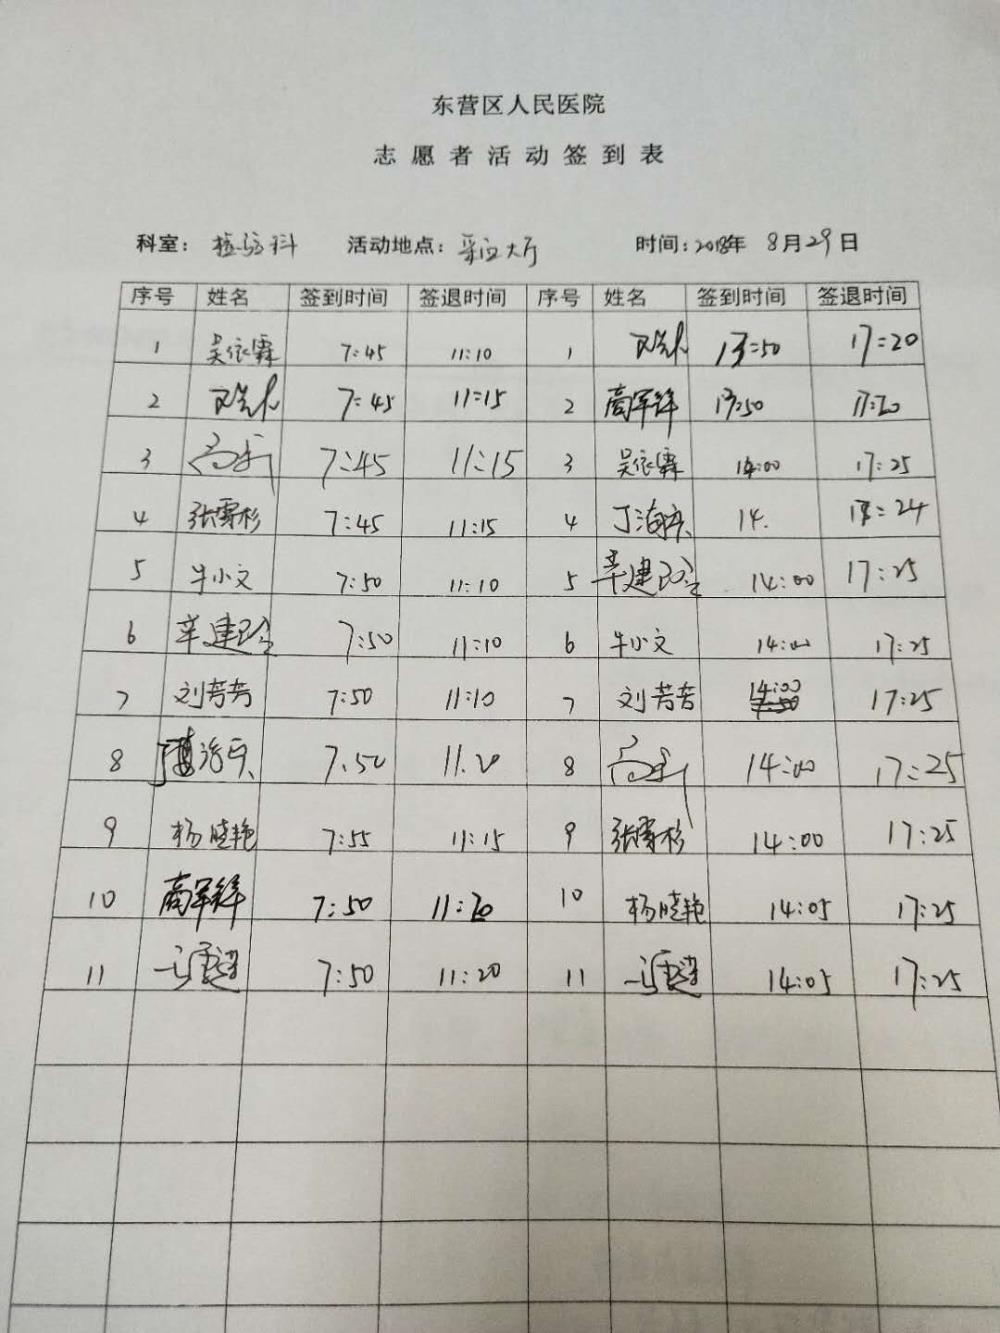 东营区人民医院
志愿者活动签到表
科室：检验科 活动地点：采血大厅 时间：2018年 8月29日
序号 姓名 签到时间 签退时间 序号 姓名 签到时间 签退时间
1 吴依霖 7:45 11:10 1 13:50 17:20
2 7:45 11:15 2 13:50 17:20
3 7:45 11:15 3 吴依霖 14:00 17:25
4 张雪杉 7:45 11:15 4 丁海 14. 17:24
5 牛小文 7:50 11:10 5 辛建玲 14:00 17:25
6 辛建玲 7:50 11:10 6 牛小文 14:00 17:25
7 刘芳芳 7:50 11:10 7 刘芳芳 14:00 17:25
8 7.50 11.20 8 14:00 17:25
9 杨晓艳 7:55 11:15 9 张雪杉 14:00 17:25
10 7:50 11:20 10 杨晓艳 14:05 17:25
11 7:50 11:20 11 14:05 17:25